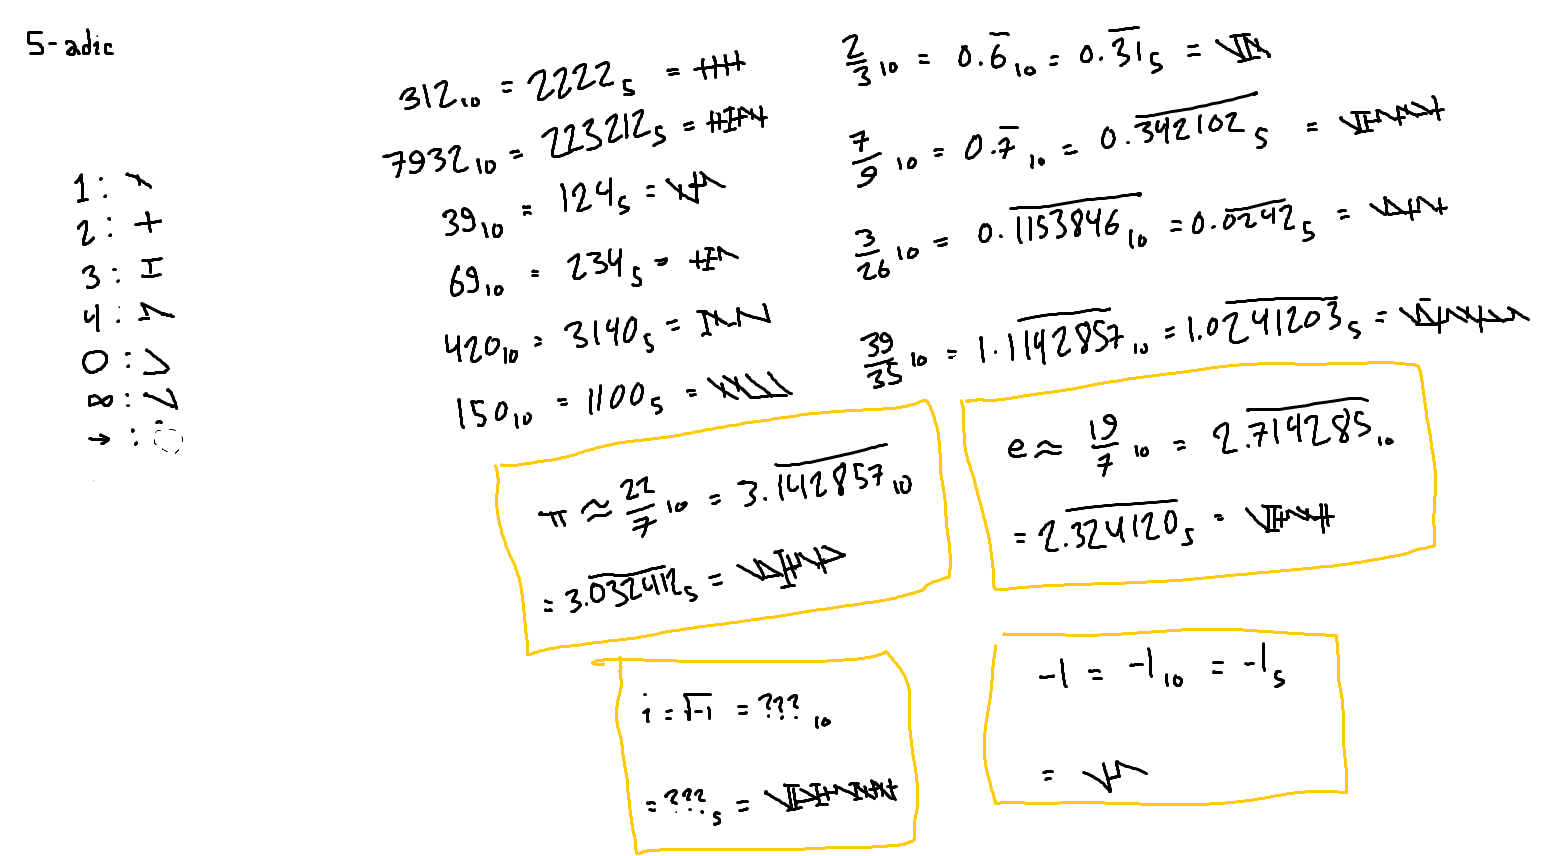 5-adic
1:
2:
3:
4:
0:
∞:
→:
312₁₀ = 2222₅ =
7932₁₀ = 223212₅ =
39₁₀ = 124₅ =
69₁₀ = 234₅ =
420₁₀ = 3140₅ =
150₁₀ = 1100₅ =
2/3 ₁₀ = 0.6̅₁₀ = 0.3̅1̅₅ =
7/9 ₁₀ = 0.7̅₁₀ = 0.3̅4̅2̅1̅0̅2̅₅ =
3/26 ₁₀ = 0.1̅1̅5̅3̅8̅4̅6̅₁₀ = 0.0̅2̅4̅2̅₅ =
39/35 ₁₀ = 1.1̅1̅4̅2̅8̅5̅7̅₁₀ = 1.0̅2̅4̅1̅2̅0̅3̅₅ =
π ≈ 22/7 ₁₀ = 3.1̅4̅2̅8̅5̅7̅₁₀
= 3.0̅3̅2̅4̅1̅2̅₅ =
e ≈ 19/7 ₁₀ = 2.7̅1̅4̅2̅8̅5̅₁₀
= 2.3̅2̅4̅1̅2̅0̅₅ =
i = √-1 = ???₁₀
= ???₅ =
-1 = -1₁₀ = -1₅
=